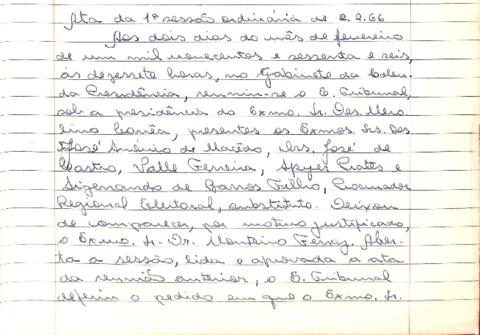 Ata da 1ª sessão ordinária de 2.2.66
Aos dois dias do mês de fevereiro
de um mil novecentos e sessenta e seis,
às dezessete horas, no Gabinete da Colen-
da Presidência, reuniu-se o E. Tribunal,
sob a presidência do Exmo. Sr. Des. Mero-
lino Corrêa, presentes os Exmos. Srs. Des.
José Américo de Macêdo, Drs. José de
Castro, Valle Ferreira, Spyer Prates e
Sizenando de Barros Filho, Procurador
Regional Eleitoral, substituto. Deixou
de comparecer, por motivo justificado,
o Exmo. Sr. Dr. Monteiro Ferraz. Aber-
ta a sessão, lida e aprovada a ata
da reunião anterior, o E. Tribunal
deferiu o pedido em que o Exmo. Sr.